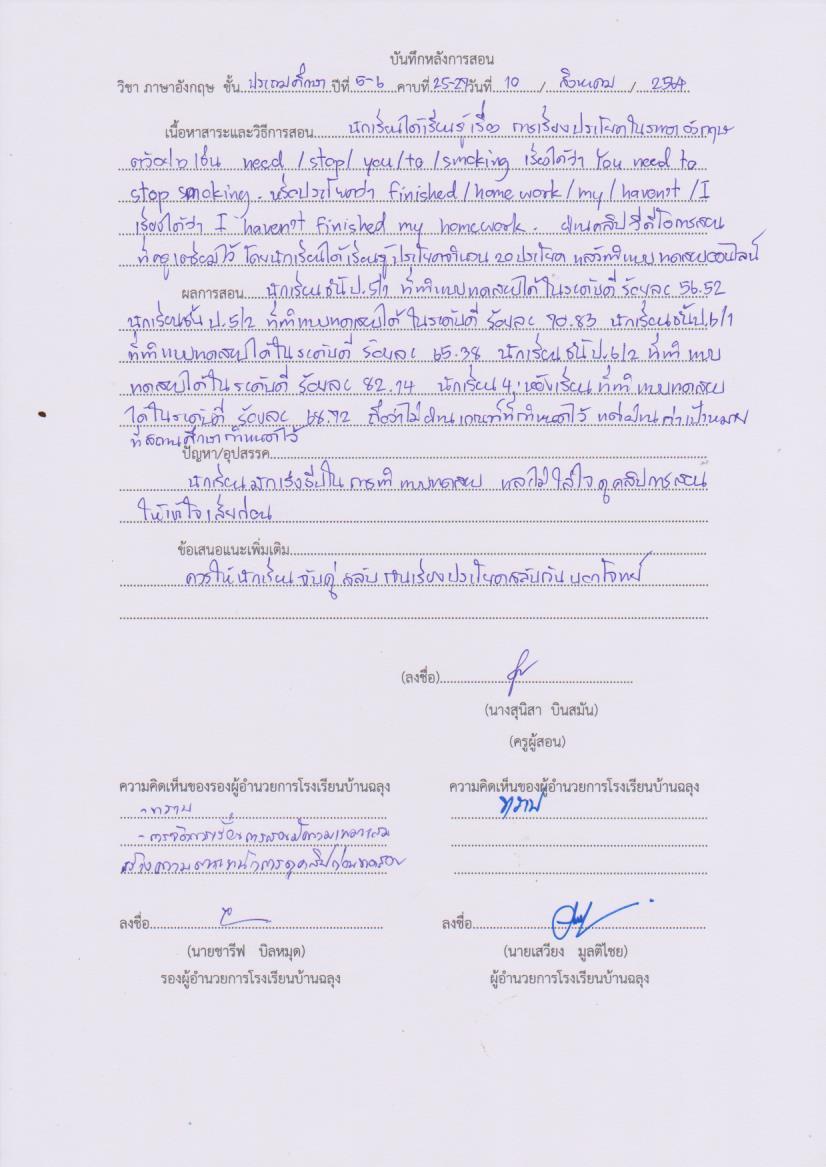 บันทึกหลังการสอน
วิชา ภาษาอังกฤษ ชั้น ประถมศึกษา ปีที่ 5-6 คาบที่ 25-29 วันที่ 10 / สิงหาคม / 2564
เนื้อหาสาระและวิธีการสอน นักเรียนได้เรียนรู้เรื่อง การเรียงประโยคในภาษาอังกฤษ
ตัวอย่างเช่น need / stop / you / to / smoking เรียงได้ว่า You need to
stop smoking. หรือประโยคว่า finished / home work / my / haven't / I
เรียงได้ว่า I haven't finished my homework. ผ่านคลิปวีดีโอการสอน
ที่ครูเตรียมไว้ โดยนักเรียนได้เรียนรู้ประโยคจำนวน 20 ประโยค แล้วทำแบบทดสอบออนไลน์
ผลการสอน นักเรียนชั้น ป.5/1 ที่ทำแบบทดสอบได้ในระดับดี ร้อยละ 56.52
นักเรียนชั้น ป.5/2 ที่ทำแบบทดสอบได้ในระดับดี ร้อยละ 70.83 นักเรียนชั้นป.6/1
ที่ทำแบบทดสอบได้ในระดับดี ร้อยละ 65.38 นักเรียนชั้นป.6/2 ที่ทำแบบ
ทดสอบได้ในระดับดี ร้อยละ 82.14 นักเรียน 4 ห้องเรียน ที่ทำแบบทดสอบ
ได้ในระดับดี ร้อยละ 68.72 ถือว่าไม่ผ่านเกณฑ์ที่กำหนดไว้ แต่ผ่านค่าเป้าหมาย
ที่สถานศึกษากำหนดไว้
ปัญหา/อุปสรรค
นักเรียนมักเร่งรีบในการทำแบบทดสอบ และไม่ใส่ใจดูคลิปการสอน
ให้เข้าใจเสียก่อน
ข้อเสนอแนะเพิ่มเติม
ควรให้นักเรียนจับคู่ สลับ เรียงประโยคสลับกันบอกโจทย์
(ลงชื่อ)
(นางสุนิสา บินสมัน)
(ครูผู้สอน)
ความคิดเห็นของรองผู้อำนวยการโรงเรียนบ้านฉลุง
- ทราบ
- การจัดการเรียนการสอนมีความเหมาะสม
สร้างความตระหนักการดูคลิปก่อนทดสอบ
ลงชื่อ
(นายซารีฟ บิลหมุด)
รองผู้อำนวยการโรงเรียนบ้านฉลุง
ความคิดเห็นของผู้อำนวยการโรงเรียนบ้านฉลุง
ทราบ
ลงชื่อ
(นายเสวียง มูลติไชย)
ผู้อำนวยการโรงเรียนบ้านฉลุง